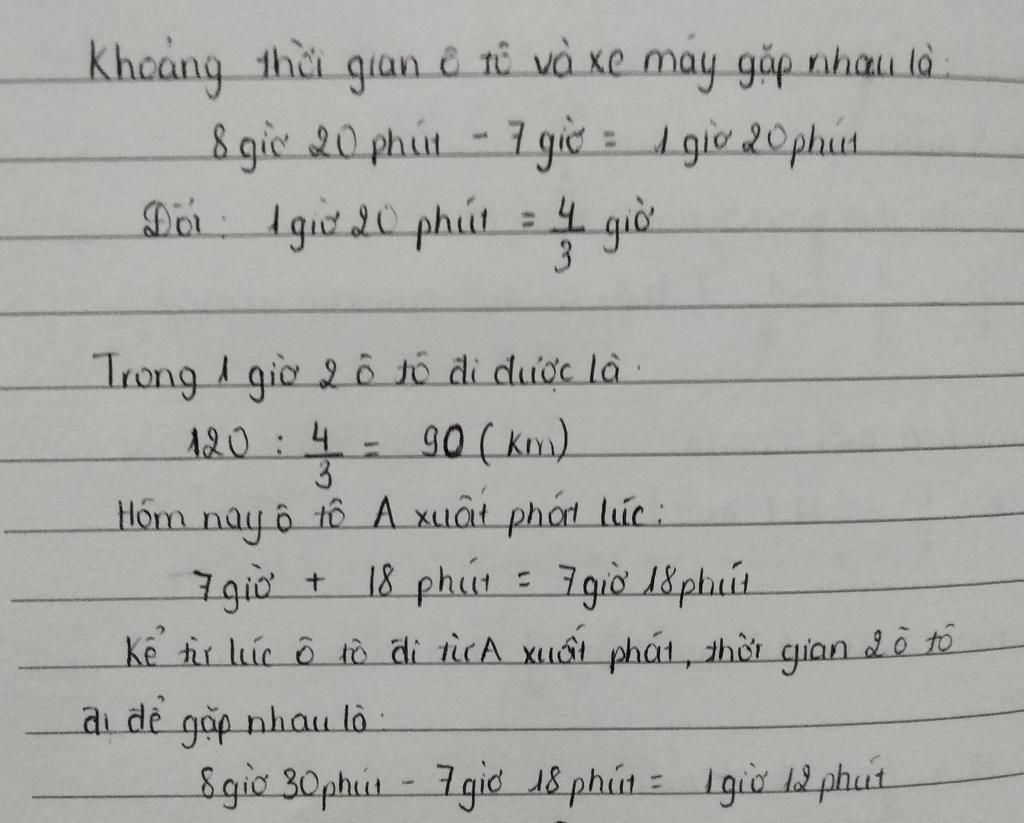 Khoảng thời gian ô tô và xe máy gặp nhau là:
8 giờ 20 phút - 7 giờ = 1 giờ 20 phút
Đổi: 1 giờ 20 phút = 4/3 giờ
Trong 1 giờ 2 ô tô đi được là:
120 : 4/3 = 90 (km)
Hôm nay ô tô A xuất phát lúc:
7 giờ + 18 phút = 7 giờ 18 phút
Kể từ lúc ô tô đi từ A xuất phát, thời gian 2 ô tô
đi để gặp nhau là:
8 giờ 30 phút - 7 giờ 18 phút = 1 giờ 12 phút